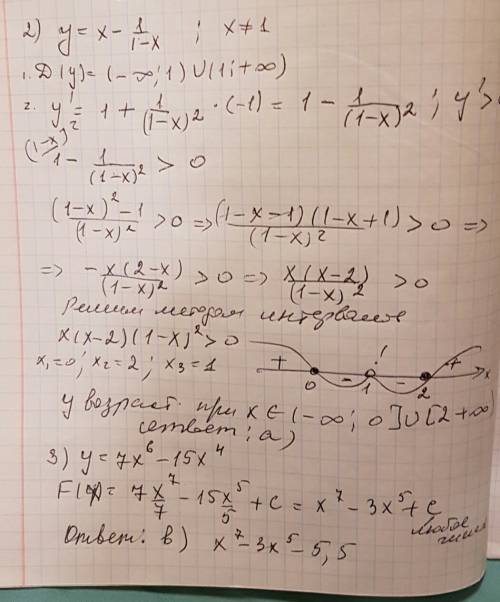 2) y = x - 1/(1-x) ; x ≠ 1
1. D(y) = (-∞; 1) ∪ (1; +∞)
2. y' = 1 + 1/(1-x)² · (-1) = 1 - 1/(1-x)² ; y' >
1 - 1/(1-x)² > 0
((1-x)² - 1)/(1-x)² > 0 => (1-x-1)(1-x+1)/(1-x)² > 0 =>
=> -x(2-x)/(1-x)² > 0 => x(x-2)/(1-x)² > 0
Решим методом интервалов
x(x-2)(1-x)² > 0
x₁=0; x₂=2; x₃=1
+ 0 - 1 - 2 + x
!
y возраст. при x ∈ (-∞; 0] ∪ [2 +∞)
ответ: а)
3) y = 7x⁶ - 15x⁴
F(x) = 7x⁷/7 - 15x⁵/5 + c = x⁷ - 3x⁵ + c
любое
Ответ: в) x⁷ - 3x⁵ - 5,5